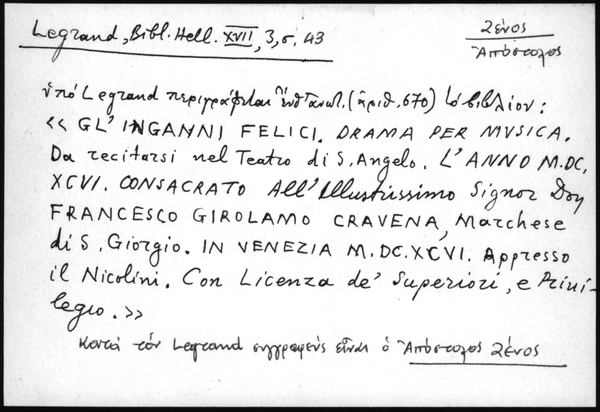 Legrand, Bibl. Hell. XVII, 3, σ. 43
Ζένος
Ἀπόστολος
ὑπό Legrand περιγράφεται (ἀριθ. 670) τὸ βιβλίον:
« GL' INGANNI FELICI. DRAMA PER MVSICA.
Da recitarsi nel Teatro di S. Angelo. L'ANNO M.DC.
XCVI. CONSACRATO All'Illustrissimo Signor Don
FRANCESCO GIROLAMO CRAVENA, Marchese
di S. Giorgio. IN VENEZIA M.DC.XCVI. Appresso
il Nicolini. Con Licenza de' Superiori, e Priui-
legio. »
Κατά τόν Legrand συγγραφεύς εἶναι ὁ Ἀπόστολος Ζένος